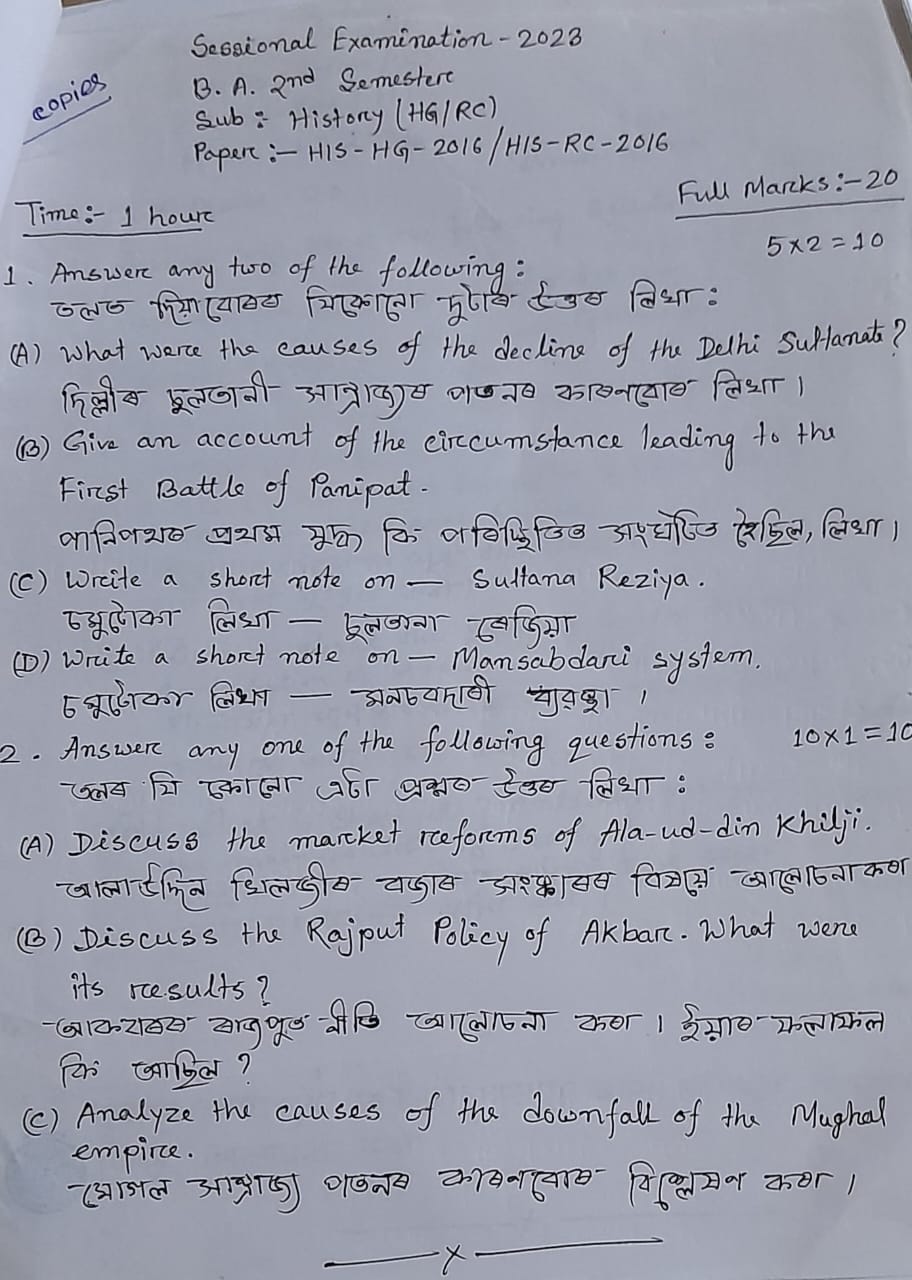 Sessional Examination - 2023
copies
B. A. 2nd Semester
Sub :- History (HG/RC)
Paper :- HIS - HG - 2016 / HIS - RC - 2016
Full Marks :- 20
Time :- 1 hour
5 x 2 = 10
1. Answer any two of the following :
তলত দিয়াবোৰৰ যিকোনো দুটাৰ উত্তৰ লিখা :
(A) What were the causes of the decline of the Delhi Sultanate ?
দিল্লীৰ চুলতানী সাম্ৰাজ্যৰ পতনৰ কাৰনবোৰ লিখা ।
(B) Give an account of the circumstance leading to the
First Battle of Panipat.
পানিপথৰ প্ৰথম যুদ্ধ কি পৰিস্থিতিত সংঘটিত হৈছিল, লিখা ।
(C) Write a short note on — Sultana Reziya.
চমুটোকা লিখা — চুলতানা ৰেজিয়া
(D) Write a short note on — Mansabdari system.
চমুটোকা লিখা — মনচবদাৰী ব্যৱস্থা ।
2. Answer any one of the following questions :
10 x 1 = 10
তলৰ যি কোনো এটা প্ৰশ্নৰ উত্তৰ লিখা :
(A) Discuss the market reforms of Ala-ud-din Khilji.
আলাউদ্দিন খিলজীৰ বজাৰ সংস্কাৰৰ বিষয়ে আলোচনা কৰা
(B) Discuss the Rajput Policy of Akbar. What were
its results ?
আকবৰৰ ৰাজপুত নীতি আলোচনা কৰা । ইয়াৰ ফলাফল
কি আছিল ?
(C) Analyze the causes of the downfall of the Mughal
empire.
মোগল সাম্ৰাজ্য পতনৰ কাৰনবোৰ বিশ্লেষণ কৰা ।
— x —